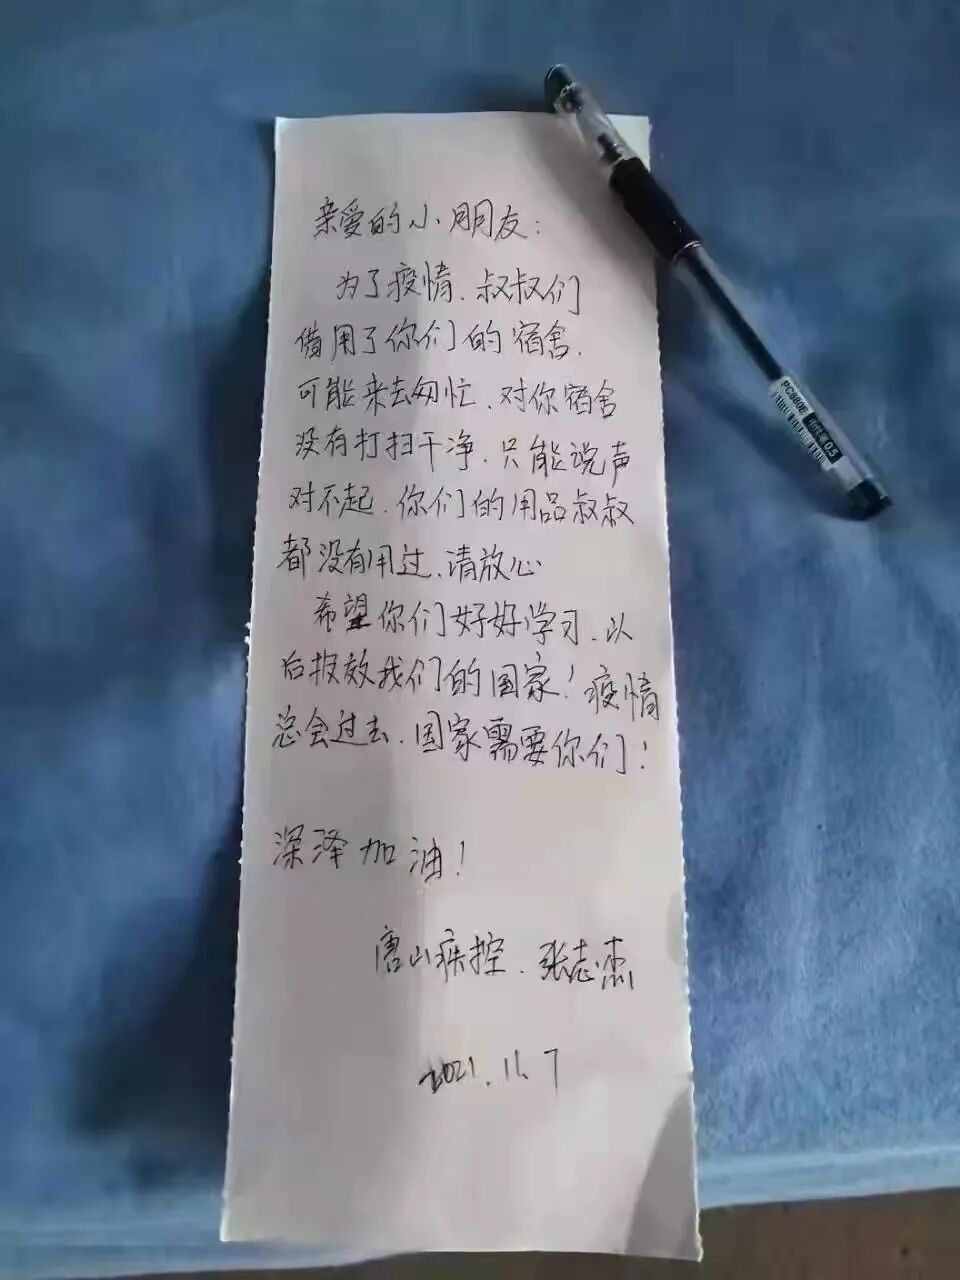 亲爱的小朋友：
为了疫情、叔叔们
借用了你们的宿舍、
可能来去匆忙、对你宿舍
没有打扫干净、只能说声
对不起、你们的用品叔叔
都没有用过、请放心
希望你们好好学习、以
后报效我们的国家！疫情
总会过去、国家需要你们！
深泽加油！
唐山疾控、张志杰
2021.11.7
PC880E
0.5